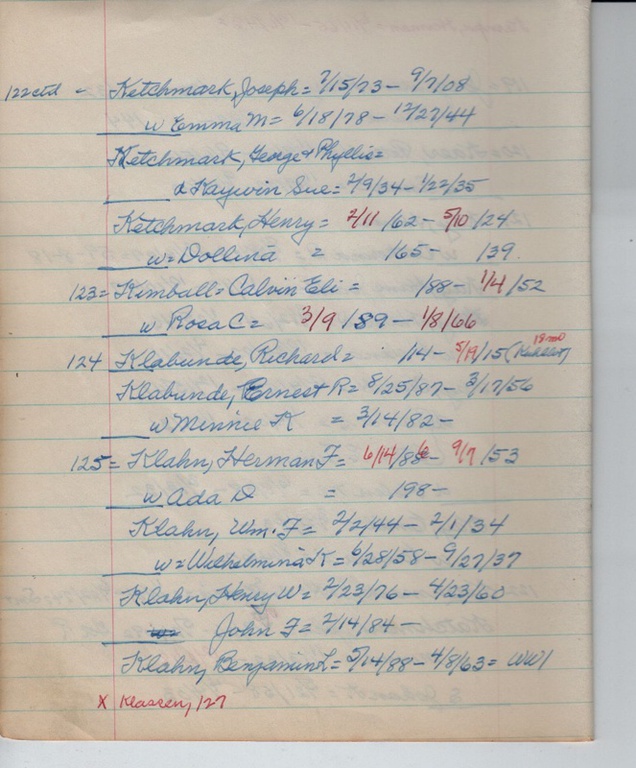 122ctd - Ketchmark, Joseph = 7/15/73 - 9/7/08
w Emma M = 6/18/78 - 12/27/44
Ketchmark, George & Phyllis =
d Kaywin Sue = 2/9/34 - 1/22/35
Ketchmark, Henry = 2/11 /62 - 5/10 /24
w = Dollina = 165- 139.
123 = Kimball = Calvin Eli = /88 - 1/4/52
w Rosa C = 3/9 /89 - 1/8/66
18 mo
124 Klabunde, Richard = /14 - 5/19/15
Klabunde, Ernest R = 8/25/87 - 3/17/56
w Minnie K = 3/14/82 -
125 = Klahn, Herman F = 6/14/86 - 9/9 /53
w Ada D = 198-
Klahn, Wm. F = 2/2/44 - 2/1/34
w = Wilhelmina K = 6/28/58 - 9/27/37
Klahn, Henry W = 2/23/76 - 4/23/60
w = John F = 2/14/84 -
Klahn, Benjamin L = 5/14/88 - 4/8/63 = WW1
X Klassen, 127